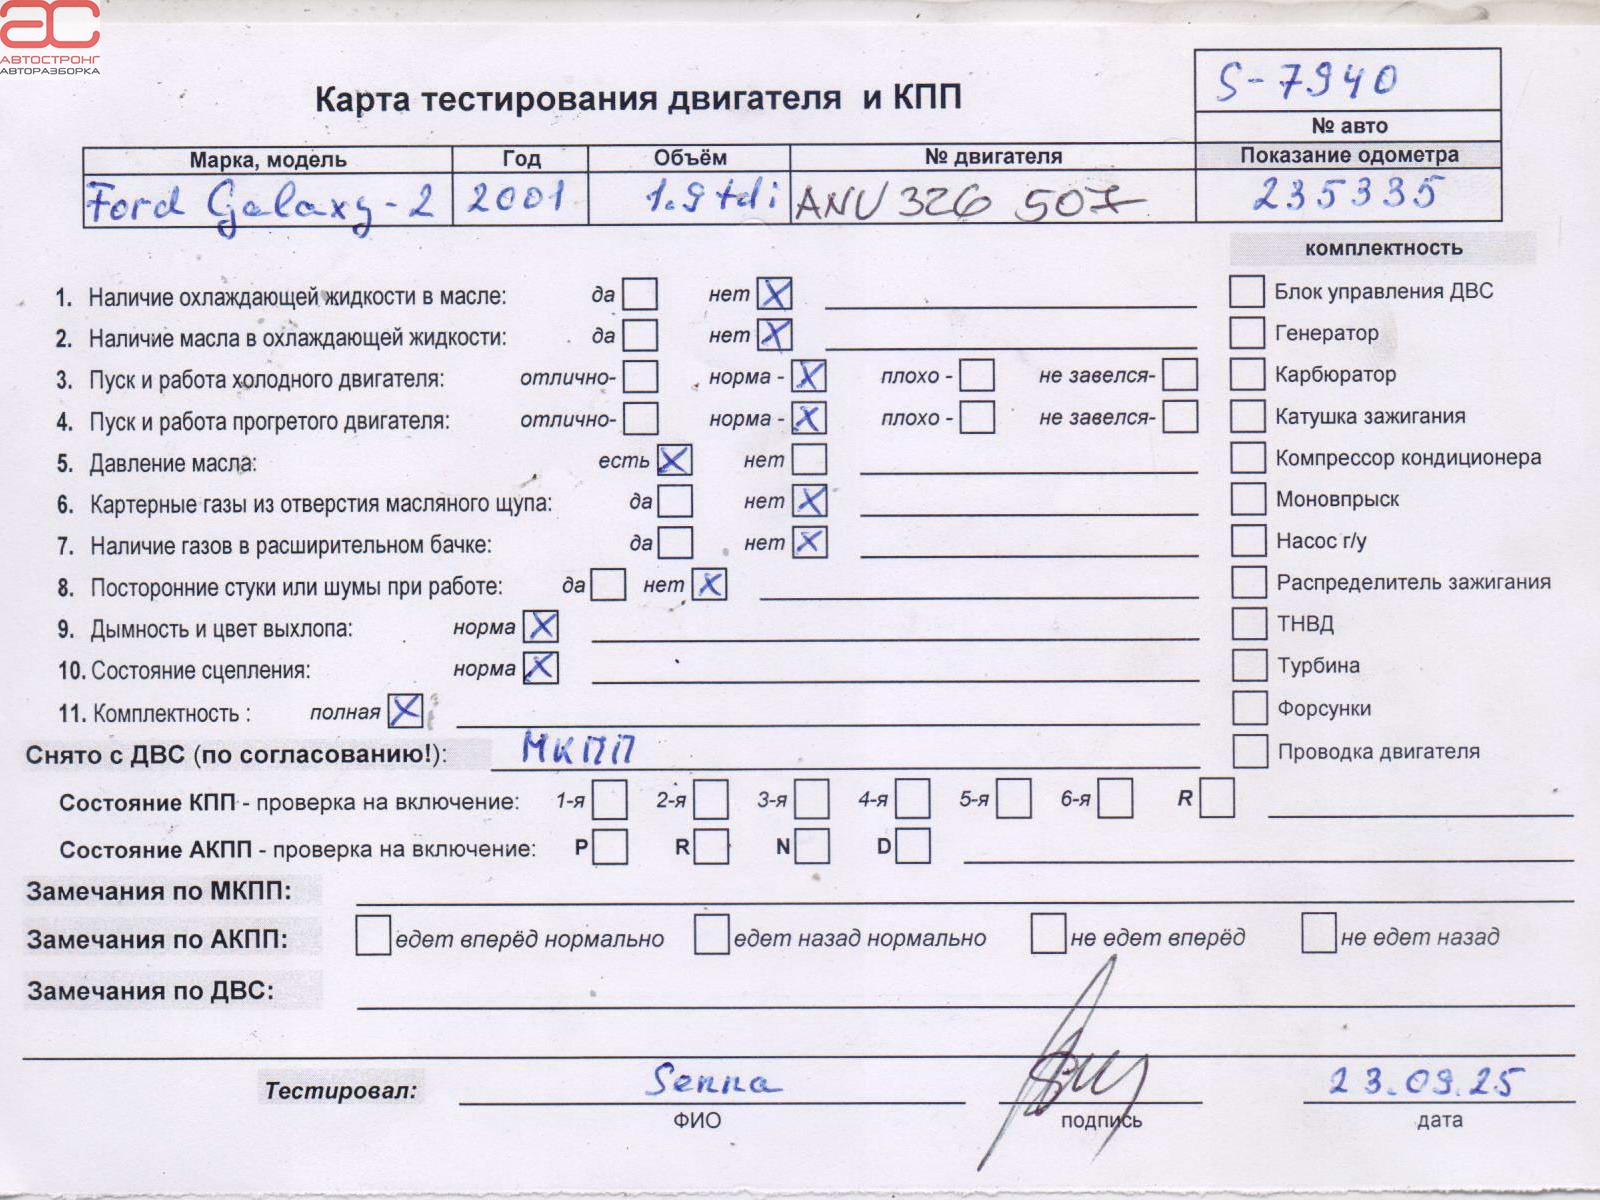 АВТОСТРОНГ
АВТОРАЗБОРКА
S-7940
Карта тестирования двигателя и КПП
№ авто
Марка, модель Год Объём № двигателя Показание одометра
Ford Galaxy-2 2001 1.9 tdi ANU 326 507 235335
комплектность
1. Наличие охлаждающей жидкости в масле: да нет X Блок управления ДВС
2. Наличие масла в охлаждающей жидкости: да нет X Генератор
3. Пуск и работа холодного двигателя: отлично- норма - X плохо - не завелся- Карбюратор
4. Пуск и работа прогретого двигателя: отлично- норма - X плохо - не завелся- Катушка зажигания
5. Давление масла: есть X нет Компрессор кондиционера
6. Картерные газы из отверстия масляного щупа: да нет X Моновпрыск
7. Наличие газов в расширительном бачке: да нет X Насос г/у
8. Посторонние стуки или шумы при работе: да нет X Распределитель зажигания
9. Дымность и цвет выхлопа: норма X ТНВД
10. Состояние сцепления: норма X Турбина
11. Комплектность : полная X Форсунки
Снято с ДВС (по согласованию!): МКПП Проводка двигателя
Состояние КПП - проверка на включение: 1-я 2-я 3-я 4-я 5-я 6-я R
Состояние АКПП - проверка на включение: P R N D
Замечания по МКПП:
Замечания по АКПП: едет вперёд нормально едет назад нормально не едет вперёд не едет назад
Замечания по ДВС:
Тестировал: Senna 23.09.25
ФИО подпись дата